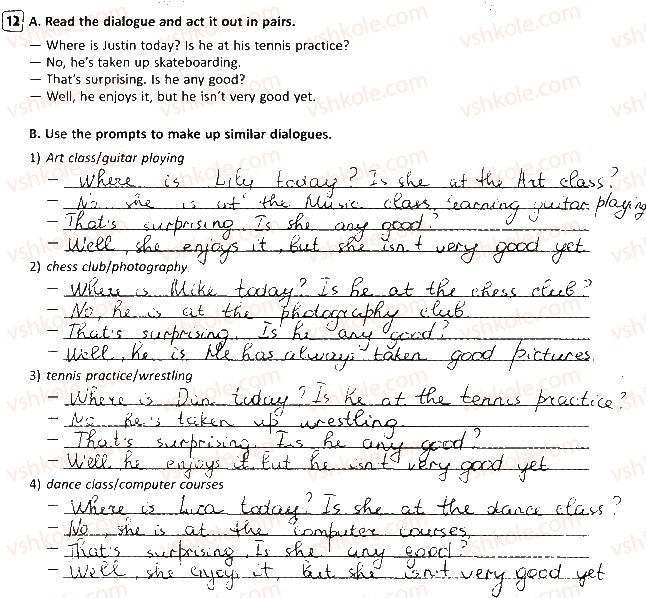 12 A. Read the dialogue and act it out in pairs.
— Where is Justin today? Is he at his tennis practice?
— No, he's taken up skateboarding.
— That's surprising. Is he any good?
— Well, he enjoys it, but he isn't very good yet.
B. Use the prompts to make up similar dialogues.
1) Art class/guitar playing
— Where is Lily today? Is she at the Art class?
— No she is at the Music class, learning guitar playing
— That's surprising. Is she any good?
— Well, she enjoys it, but she isn't very good yet
2) chess club/photography
— Where is Mike today? Is he at the chess club?
— No, he is at the photography club.
— That's surprising. Is he any good?
— Well, he is He has always taken good pictures.
3) tennis practice/wrestling
— Where is Dim today? Is he at the tennis practice?
— No he's taken up wrestling
— That's surprising. Is he any good?
— Well he enjoys it but he isn't very good yet
4) dance class/computer courses
— Where is Liza today? Is she at the dance class?
— No, she is at the computer courses
— That's surprising. Is she any good?
— Well, she enjoy it, but she isn't very good yet